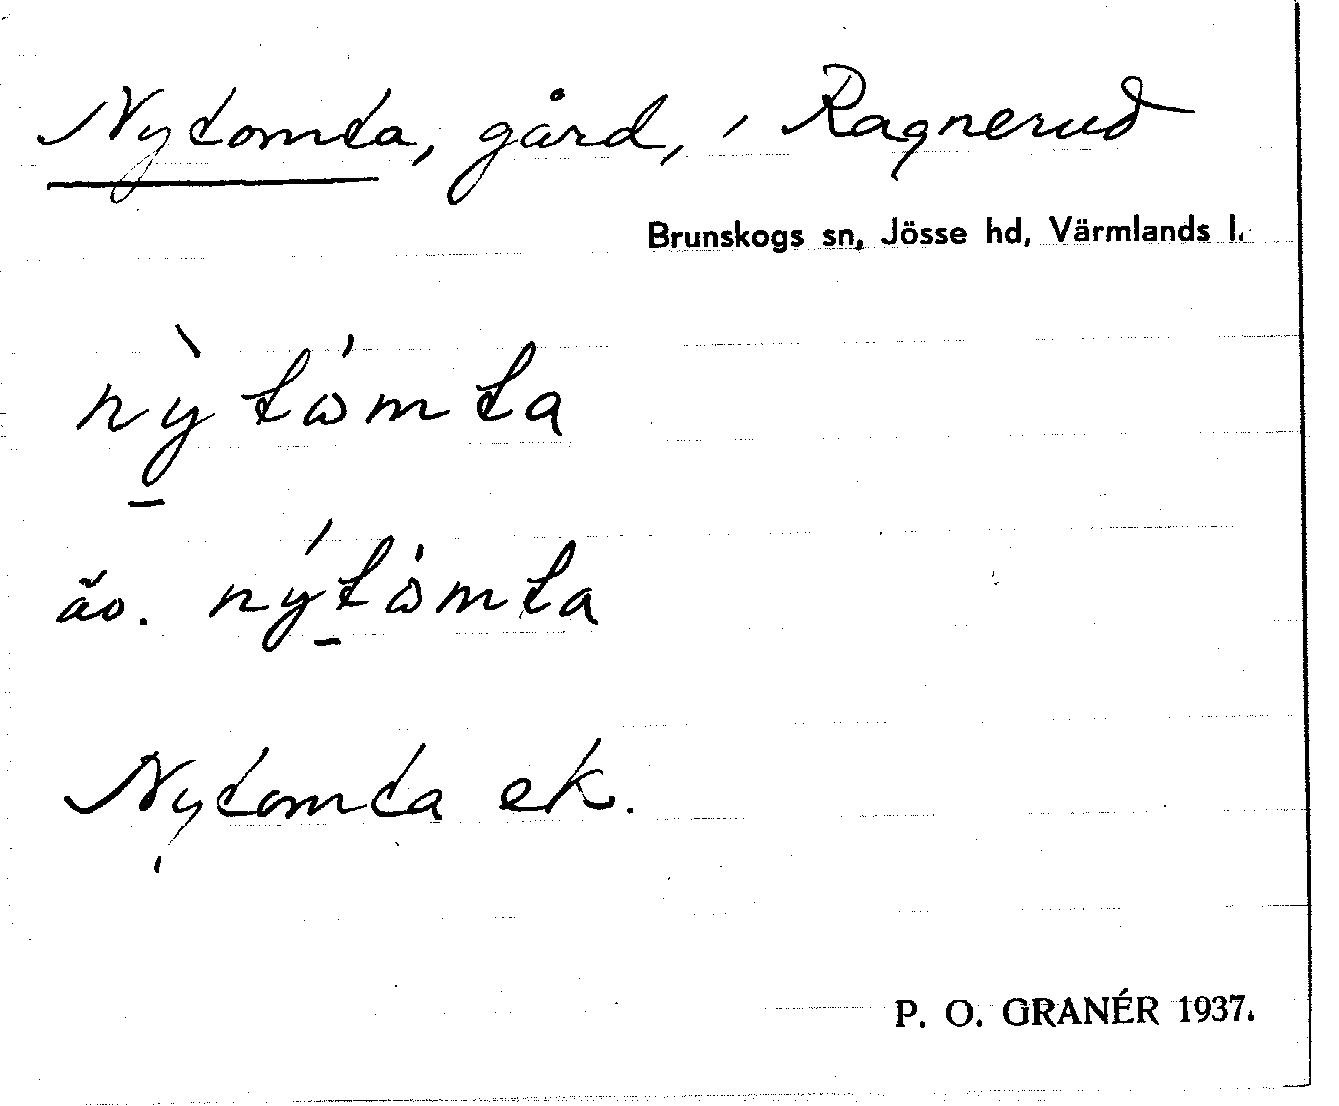 Nytomta, gård, i Ragnerud
Brunskogs sn, Jösse hd, Värmlands l.
nỳ̠tώmta
äv. nýt̠ώmta
Nytomta ek.
P. O. GRANÉR 1937.